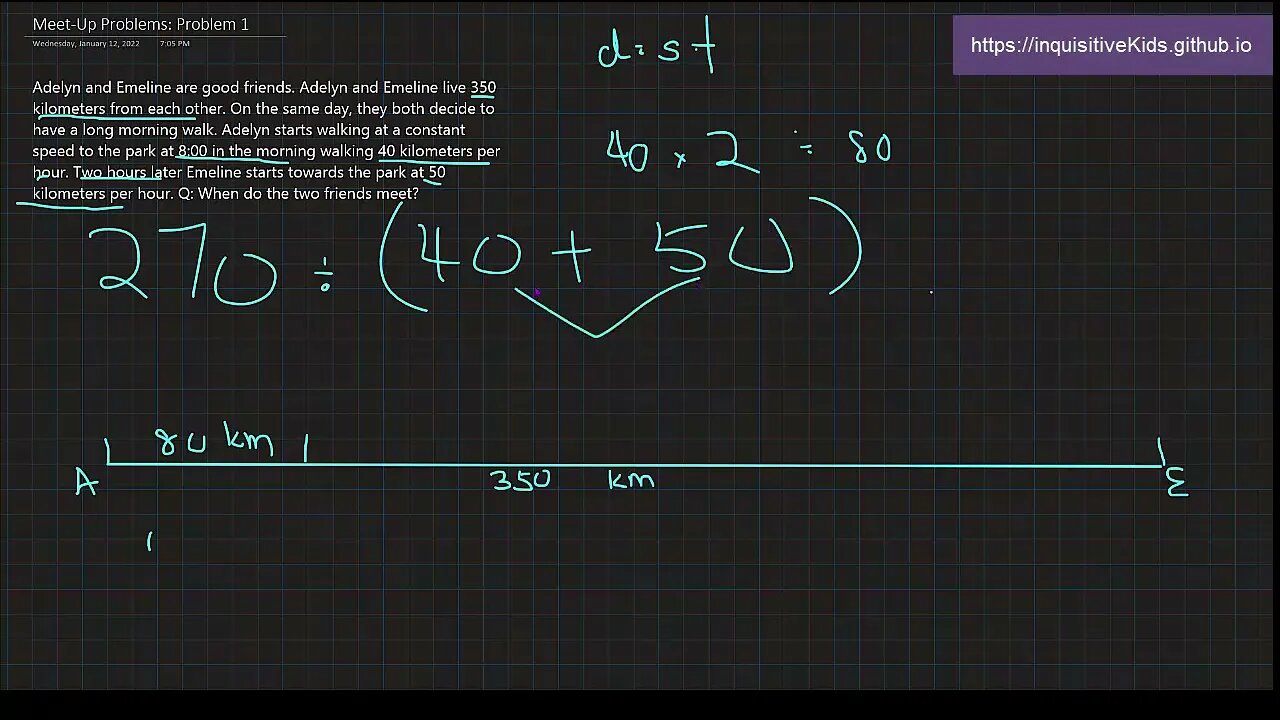 Meet-Up Problems: Problem 1
Wednesday, January 12, 2022 7:05 PM
https://inquisitiveKids.github.io
d=s·t
Adelyn and Emeline are good friends. Adelyn and Emeline live 350
kilometers from each other. On the same day, they both decide to
have a long morning walk. Adelyn starts walking at a constant
speed to the park at 8:00 in the morning walking 40 kilometers per
hour. Two hours later Emeline starts towards the park at 50
kilometers per hour. Q: When do the two friends meet?
40 × 2 = 80
270 ÷ (40 + 50)
80 km
A 350 km E